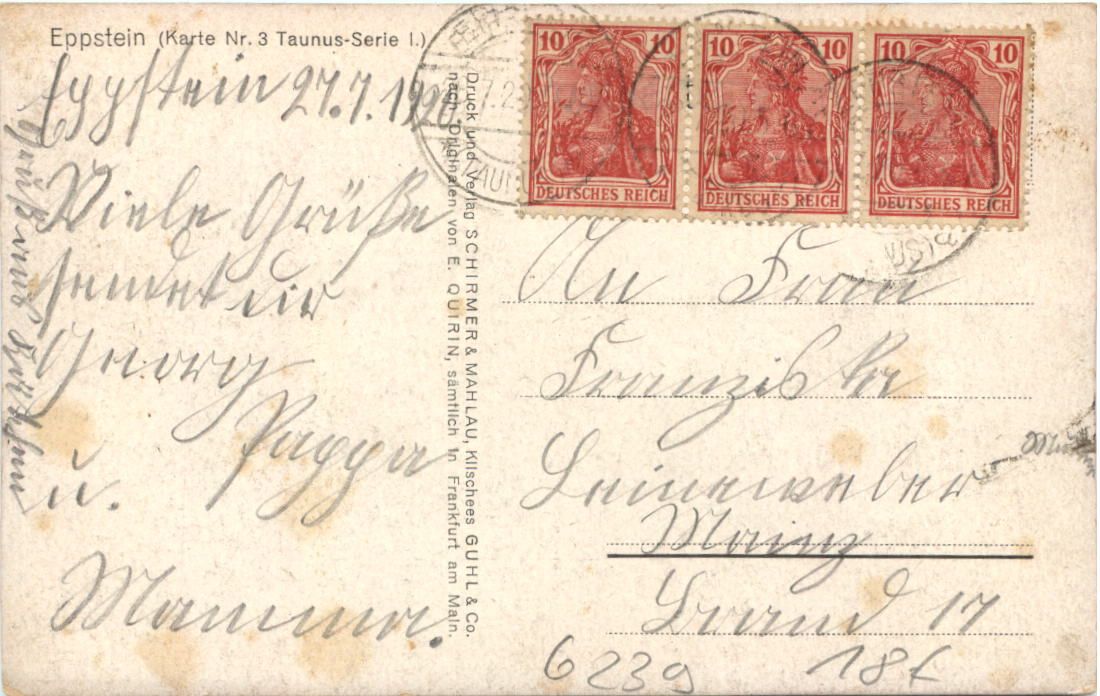 Eppstein (Karte Nr. 3 Taunus-Serie I.)
Eppstein 27.7.1920
Viele Grüße
sendet dir
Georg
Pappa
u.
Mamma.
Gruß aus
Druck und Verlag SCHIRMER & MAHLAU, Klischees GUHL & Co.
nach Originalen von E. QUIRIN, sämtlich in Frankfurt am Main.
10 10 10 10 10 10
DEUTSCHES REICH DEUTSCHES REICH DEUTSCHES REICH
An Frau
Franziska
Leineweber
Mainz
Brand 17
6239 18f